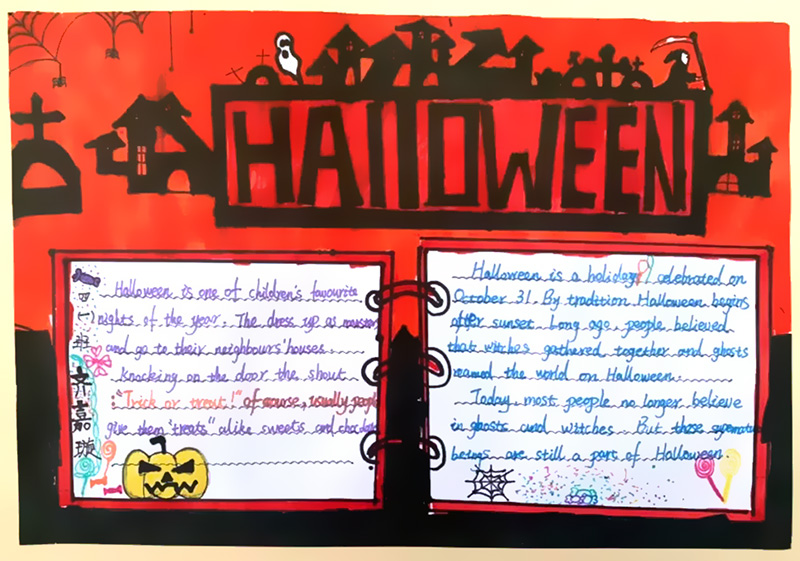 HAllOWEEN
Halloween is one of children's favourite
nights of the year. The dress up as monster
and go to their neighbours' houses.
knocking on the door the shout
:"Trick or treat!" of course, usually people
give them "treats" alike sweets and chocolate
四(一)班齐嘉璇
Halloween is a holiday celebrated on
October 31. By tradition Halloween begins
after sunset. Long ago, people believed
that witches gathered together and ghosts
roamed the world on Halloween.
Today most people no longer believe
in ghosts and witches. But these supernatu
beings are still a part of Halloween.